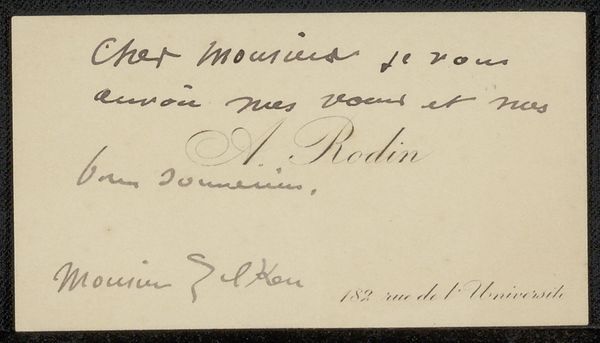 Cher Monsieur je vous
envoie mes voeux et mes
A. Rodin
bons souvenirs.
Monsieur Zilken
182 rue de l'Université